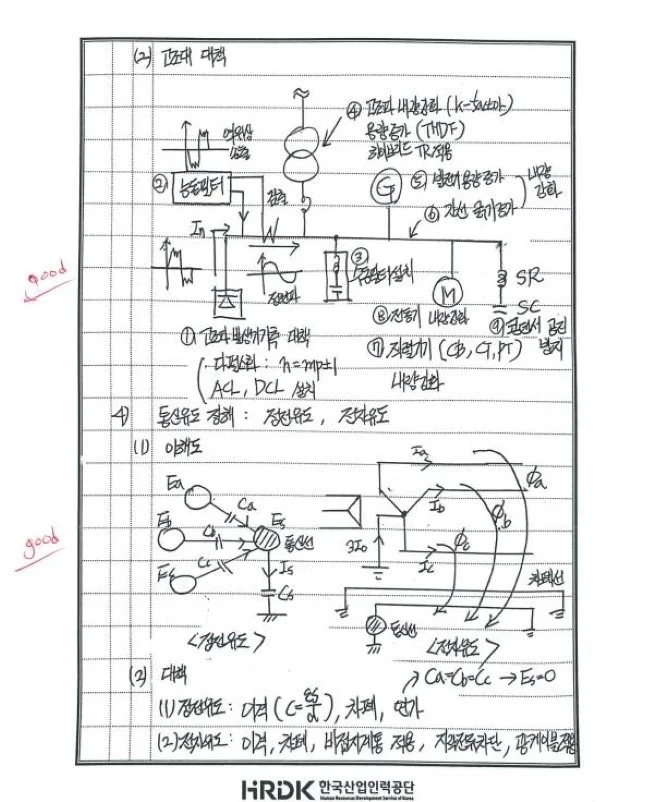 (2) 고조파 대책
④ 고조파 내량강화 (K-factor)
용량증가 (THDF)
하이브리드 TR적용
역위상
② 능동필터
검출
G ⑤ 발전기 용량증가
⑥ 간선 굵기증가
내량
강화
In
정현파
③
수동필터설치
M
SR
SC
⑧ 전동기 내량강화
⑨ 콘덴서 공진
방지
① 고조파 발생기기측 대책
다펄스화 : n=mp±1
ACL, DCL 설치
⑦ 직렬기기 (CB, CT, PT)
내량강화
4) 통신유도 장해 : 정전유도, 전자유도
(1) 이해도
Ea
Ca
Eb
Cb
Es
통신선
Ec
Cc
Is
Cs
<정전유도>
Ia
Ib
Ic
3I₀
Φa
Φb
Φc
차폐선
통신선
<전자유도>
(2) 대책
→ Ca=Cb=Cc → Es=0
(1) 정전유도 : 이격 (C=εs/d), 차폐, 연가
(2) 전자유도 : 이격, 차폐, 비접지계통 적용, 지락전류차단, 광케이블적용
good
good
HRDK 한국산업인력공단
Human Resources Development Service of Korea